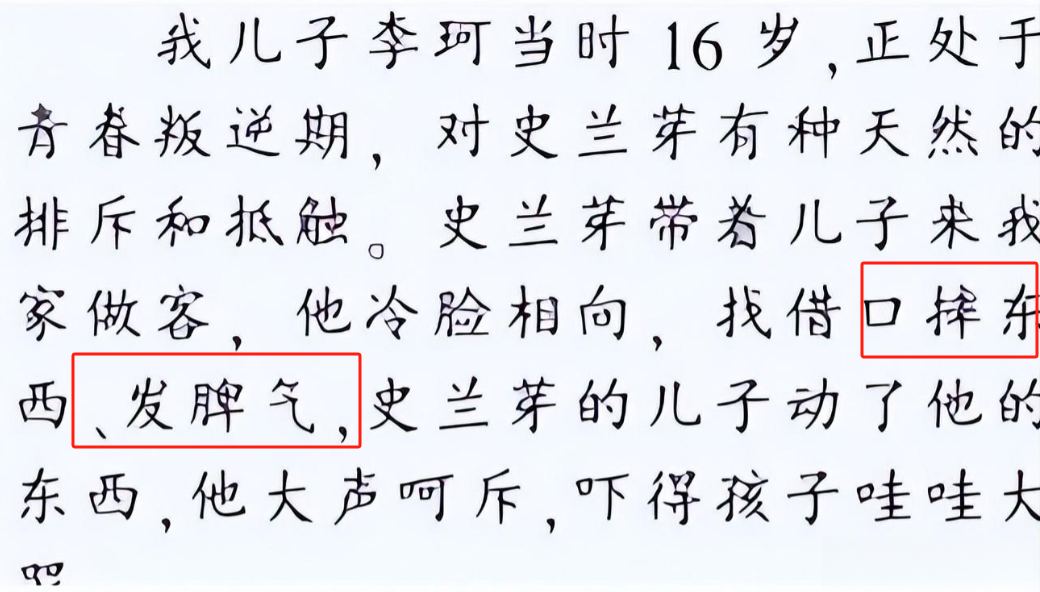 我儿子李珂当时 16 岁,正处于
青春叛逆期,对史兰芽有种天然的
排斥和抵触。史兰芽带着儿子来我
家做客,他冷脸相向,找借口摔东
西、发脾气,史兰芽的儿子动了他的
东西,他大声呵斥,吓得孩子哇哇大